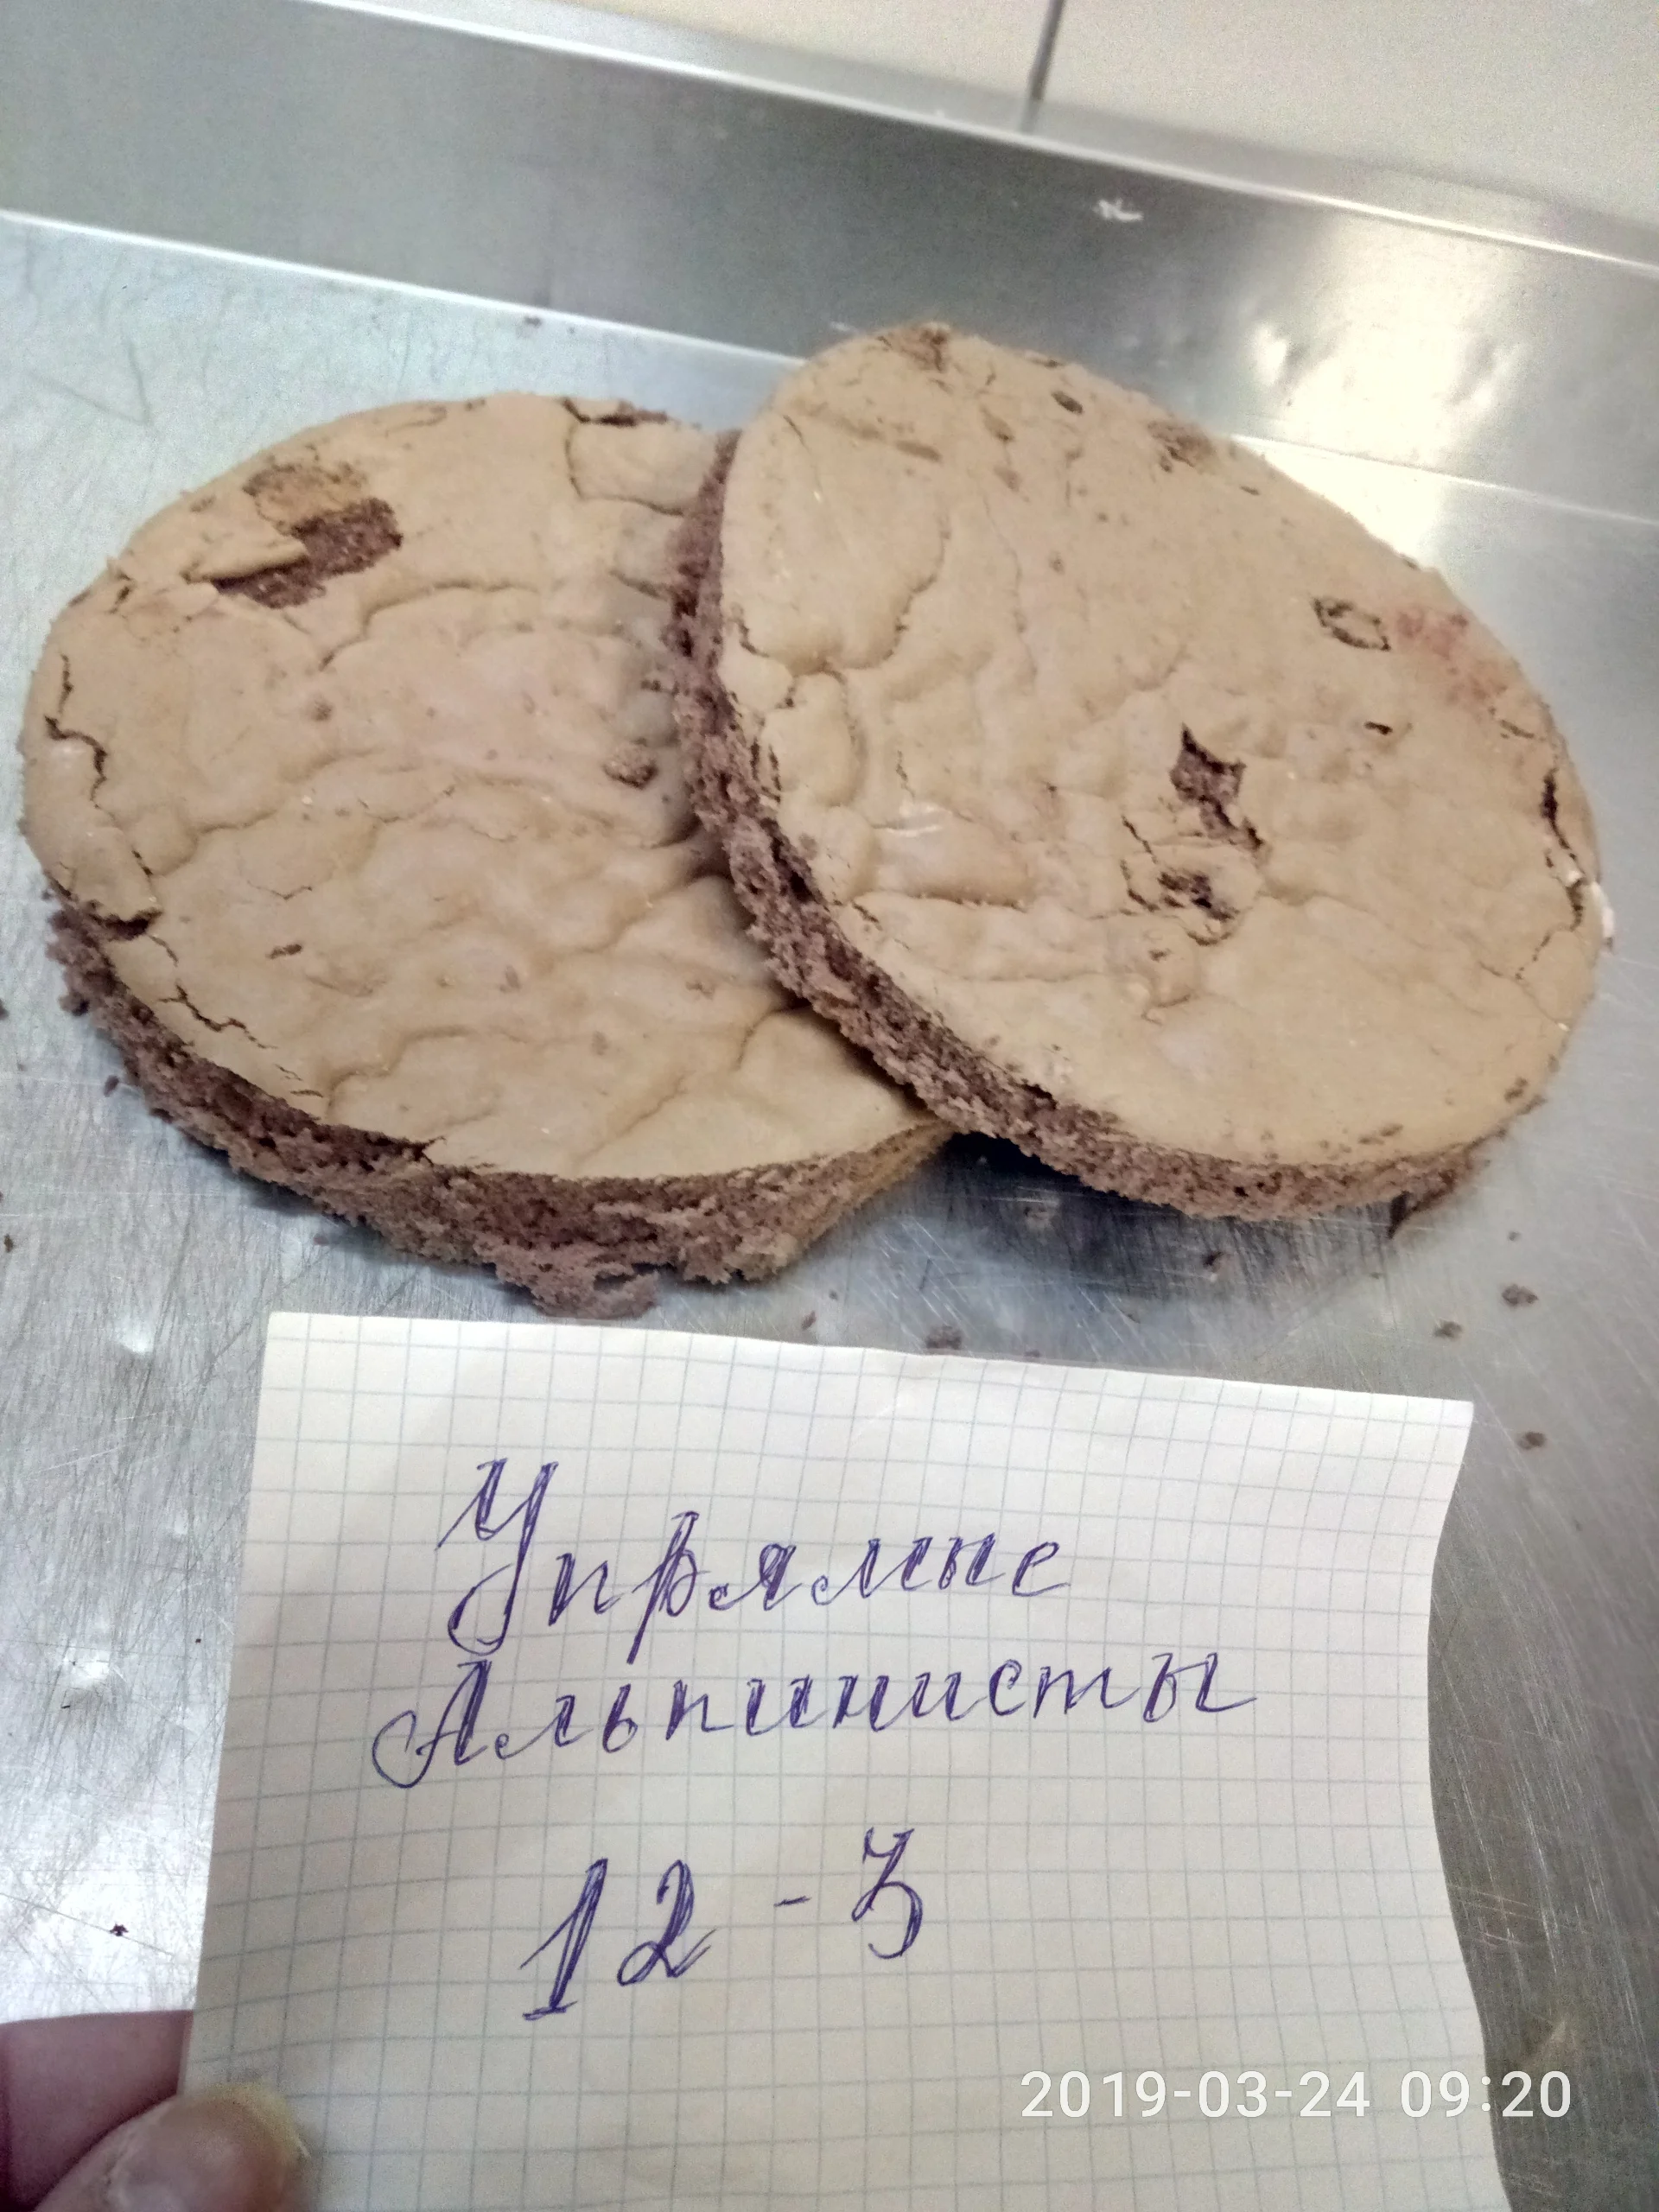 Упрямые
Альпинисты
12-3
2019-03-24 09:20